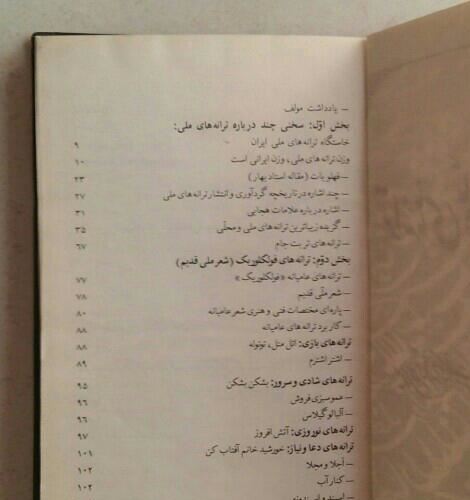 — یادداشت مولف
بخش اوّل: سخنی چند درباره ترانه‌های ملی:
خاستگاه ترانه‌های ملی ایران ۹
وزن ترانه‌های ملی، وزن ایرانی است ۱۰
— فهلویات (مقاله استاد بهار) ۲۳
— چند اشاره در تاریخچه گردآوری و انتشار ترانه‌های ملی ۲۷
— اشاره درباره علامات هجایی ۳۱
— گزیده زیباترین ترانه‌های ملی و محلّی ۳۵
— ترانه‌های تربت جام ۶۷
بخش دوّم: ترانه‌های فولکلوریک (شعر ملی قدیم)
— ترانه‌های عامیانه «فولکلوریک» ۷۷
— شعر ملّی قدیم ۷۸
— پاره‌ای مختصات فنی و هنری شعر عامیانه ۸۰
— کاربرد ترانه‌های عامیانه ۸۸
ترانه‌های بازی: اتل متل، توتوله ۸۸
— اشتر اشترم ۸۹
ترانه‌های شادی و سرور: بشکن بشکن ۹۵
— عمو سبزی‌فروش ۹۶
— آلبالو گیلاس ۹۶
ترانه‌های نوروزی: آتش افروز ۹۷
ترانه‌های دعا و نیاز: خورشید خانم آفتاب کن ۱۰۱
— اجلا و مجلا ۱۰۲
— کنار آب ۱۰۲